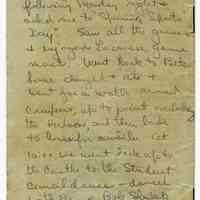 following Monday night &
asked me to "Spring Sports
Day". Saw all the games
& enjoyed Lacrosse game
most. Went back to Beta
house changed & ate &
went for a walk around
campus, up to point
the Hudson, and then back
to house for awhile. At
10:00 we went back up to
the Castle to the Student
Council dance - danced
with